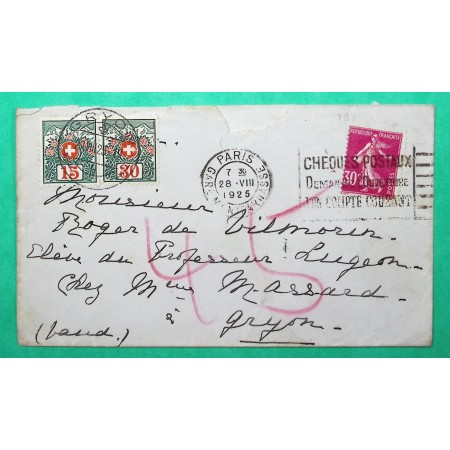 GRYON
15
30
PARIS
7 30
28 - VIII
1925
GARE
RÉPUBLIQUE FRANÇAISE
30c
CHEQUES POSTAUX
DEMANDEZ L'OUVERTURE
D'UN COMPTE COURANT
45
Monsieur
Roger de Vilmorin
Elève du Professeur Lugeon
Chez Mme Massard
Gryon.
(Vaud).